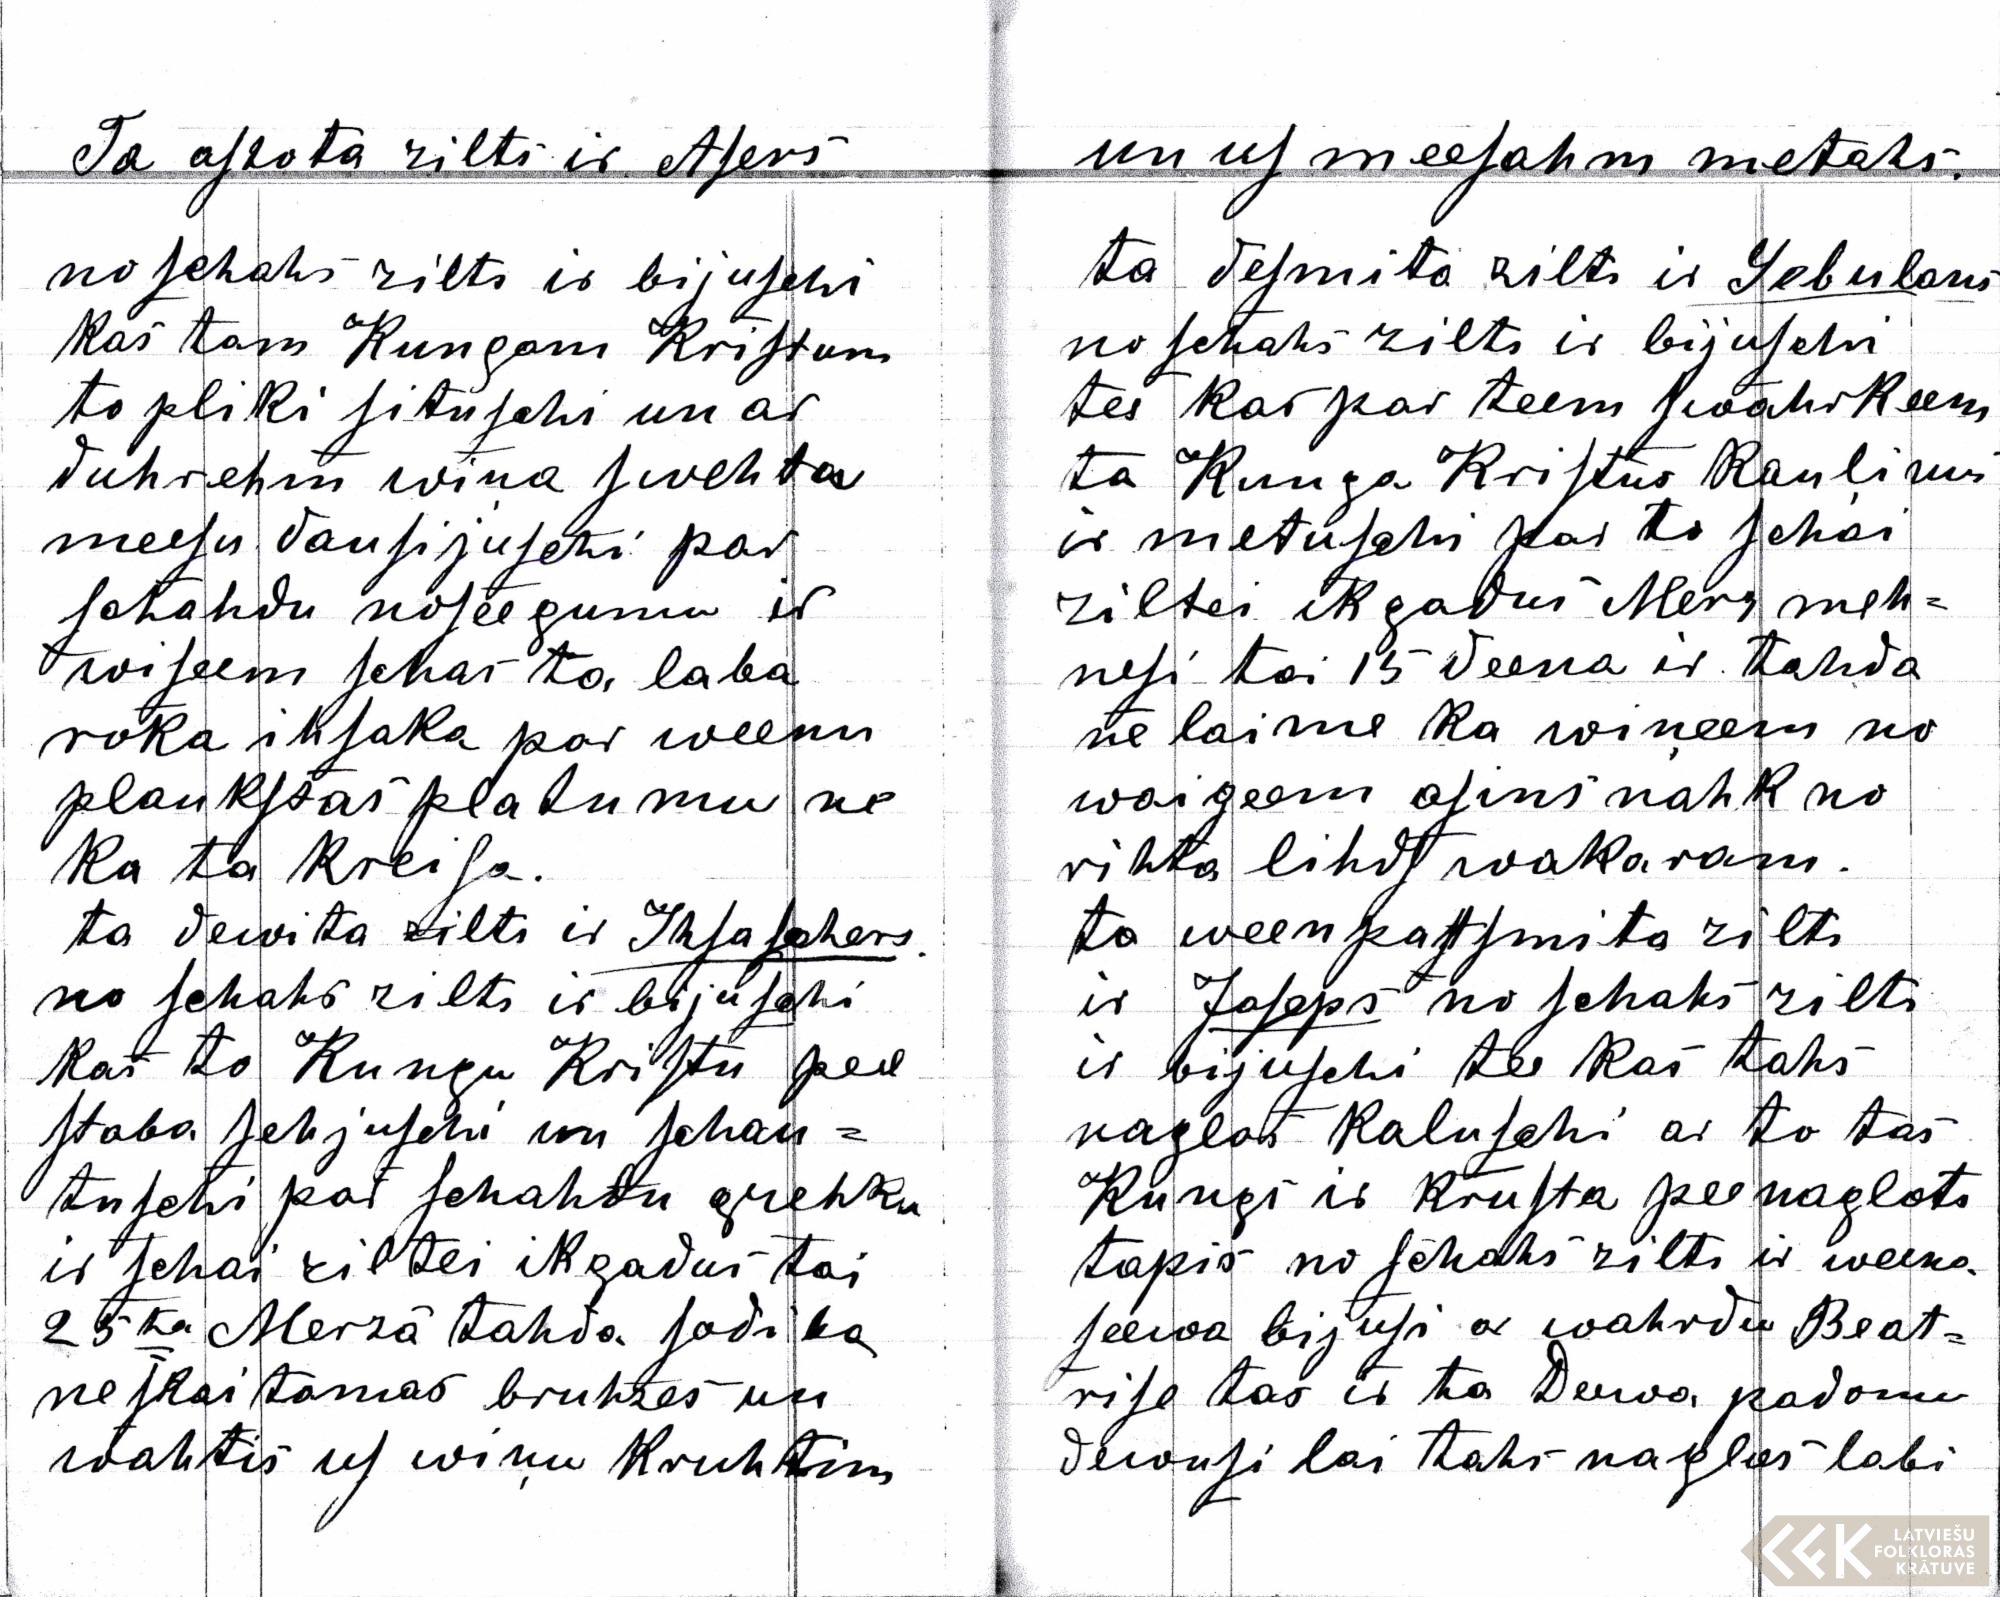 Ta astota zilts ir Asers
no schahs zilts ir bijuschi
kas tam Kungam Kristum
to pliki situschi un ar
duhrehm wiņa swehta
meesu dausijuschi par
schahdu noseegumu ir
wiseem schas ta laba
roka ihsaka par weenu
plaukstas platumu ne
ka ta kreisa.
ta dewita zilts ir Ihsaschers.
no schahs zilts ir bijuschi
kas to Kungu Kristu pee
staba sehjuschi un schau=
tuschi par schahdu grehku
ir schai ziltei ikgadus tai
25ta Merzā tahda sodiba
neskaitamas bruhzes un
wahtis us wiņu kruhtim
un us meesahm metahs.
ta desmita zilts ir Sebulans
no schahs zilts ir bijuschi
tee kas par teem swahrkeem
ta Kunga Kristus kauliņus
ir metuschi par to schai
ziltei ikgadus Merz meh=
nesi tai 15 deena ir tahda
ne laime ka wiņeem no
waigeem asins nahk no
rihta lihds wakaram.
ta weenpatsmita zilts
ir Joseps no schahs zilts
ir bijuschi tee kas tahs
naglas kaluschi ar to tas
Kungs ir krusta peenaglots
tapis no schahs zilts ir weena
seewa bijusi ar wahrdu Beat=
rise tas ir ta Deewa padomu
dewusi lai tahs naglas labi
LATVIEŠU
FOLKLORAS
KRĀTUVE